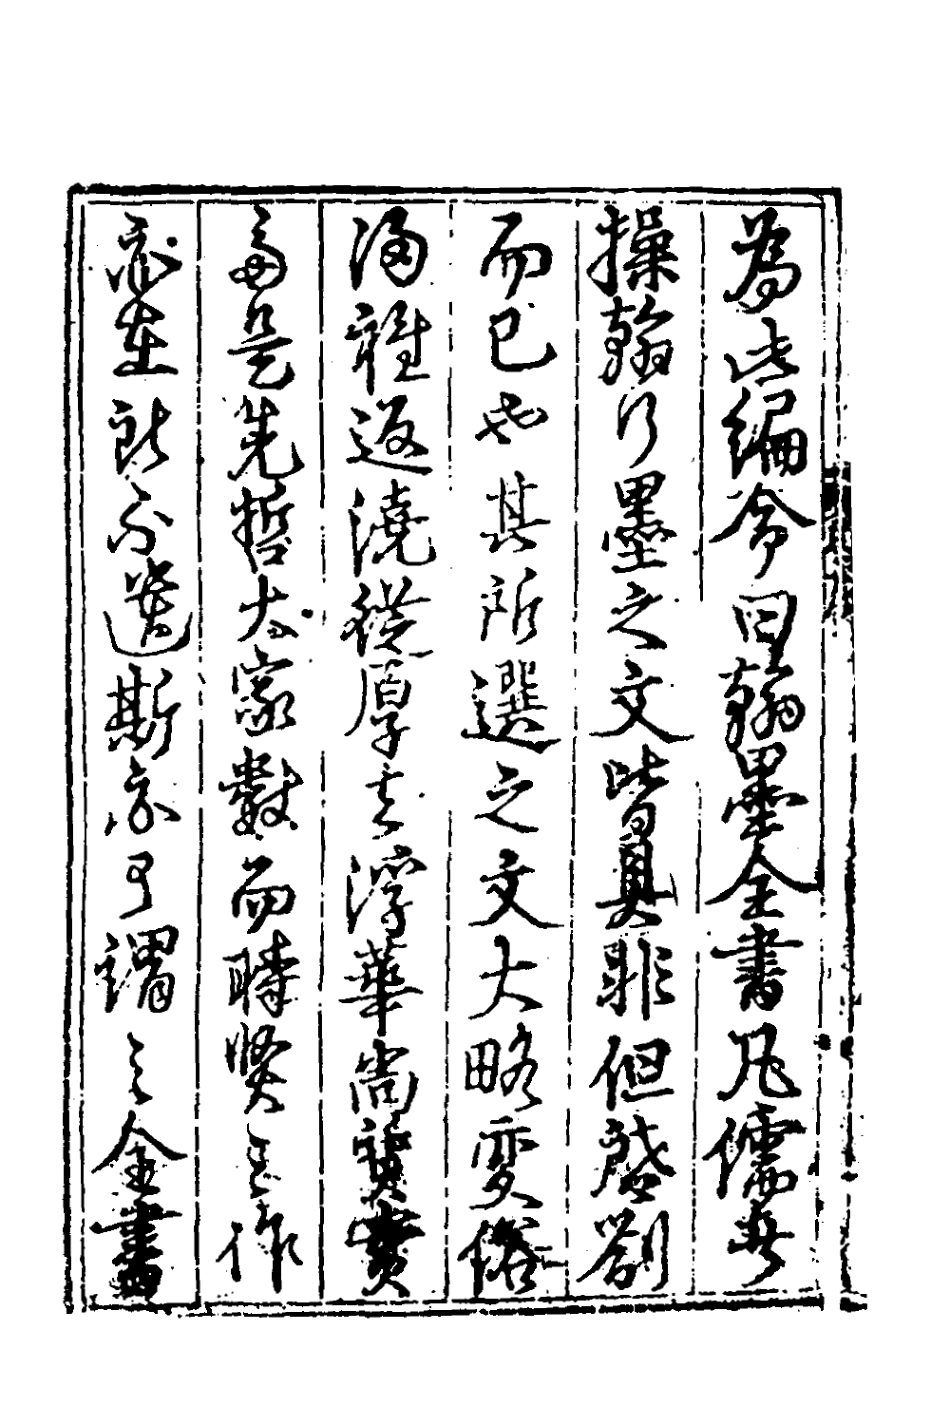 為此編命曰翰墨全書凡儒者
操翰行墨之文皆具非但啓劄
而已也其所選之文大略変俗
歸雅返澆從厚去浮華尚質實
多是先哲大家數而時賢之作
亦在所不遺斯亦可謂之全書